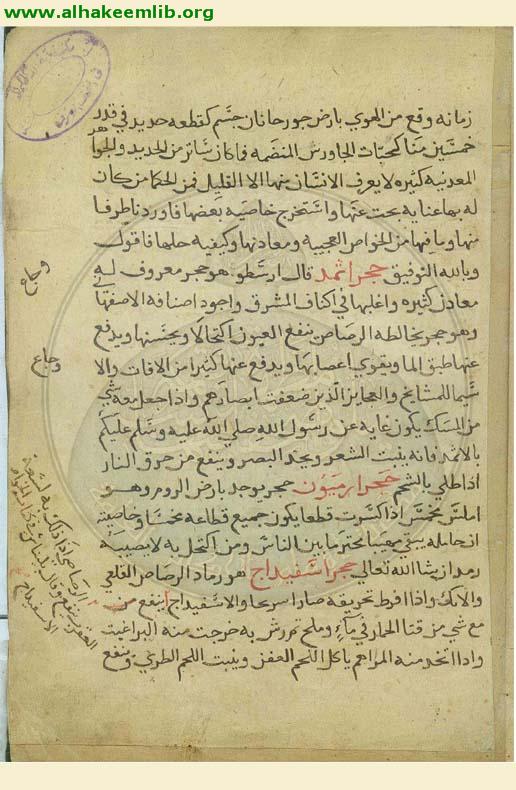 www.alhakeemlib.org
زمانه وقع من الهوي بارض جورحانان جسم كقطعه حديد في قدر
خمسين منا كحبات الجاورس المنضمه فما كان سائر من الحديد والجواهر
المعدنية كثيره لا يعرف الانسان منها الا القليل فمن الحكما من كان
له بها عنايه بحث عنها واستخرج خاصيه بعضها فاورد ناطرفا
منها وما فيها من الخواص العجيبة ومعادنها وكيفيه حلها فاقول
وبالله التوفيق حجر اثمد قال ارسطو هو حجر معروف له
معادن كثيره واغلبها في اكناف المشرق واجود اصنافه الاصفهاني
وهو حجر يخالطه الرصاص ينفع العيون اكتحالا ويحسنها ويدفع
عنها طبق الما ويقوي اعصابها ويدفع عنها كثيرا من الافات والا
سيما للمشايخ والعجايز الذين ضعفت ابصارهم واذا جعل معه شي
من المسك يكون غايه عن رسول الله صلي الله عليه وسلم عليكم
بالاثمد فانه ينبت الشعر ويحد البصر وينفع من حرق النار
اذا طلي بالشحم حجر ارميون حجر يوجد بارض الروم وهو
املس مخمس اذا كسرت قطعا يكون جميع قطاعه مخمسا وخاصيته
ان حامله يبقي مهيبا محترما بين الناس ومن اكتحل به لا يصيبه
رمد ان شا الله تعالي حجر اسفيداج هو رماد الرصاص القلعي
والانك واذا افرط تحريقه صار اسرنجا والاسفيداج ينفع من
مع شي من قثا الحمار في ماء وملح ثم رش به خرجت منه البراغيث
واذا اتخد منه المراهم ياكل اللحم العفن وينبت اللحم الطري وينفع
وجاع
وجاع
الرصاص اذا دلك به لسعة
العقرب ينفع وقال بليناس
الاسفيداج